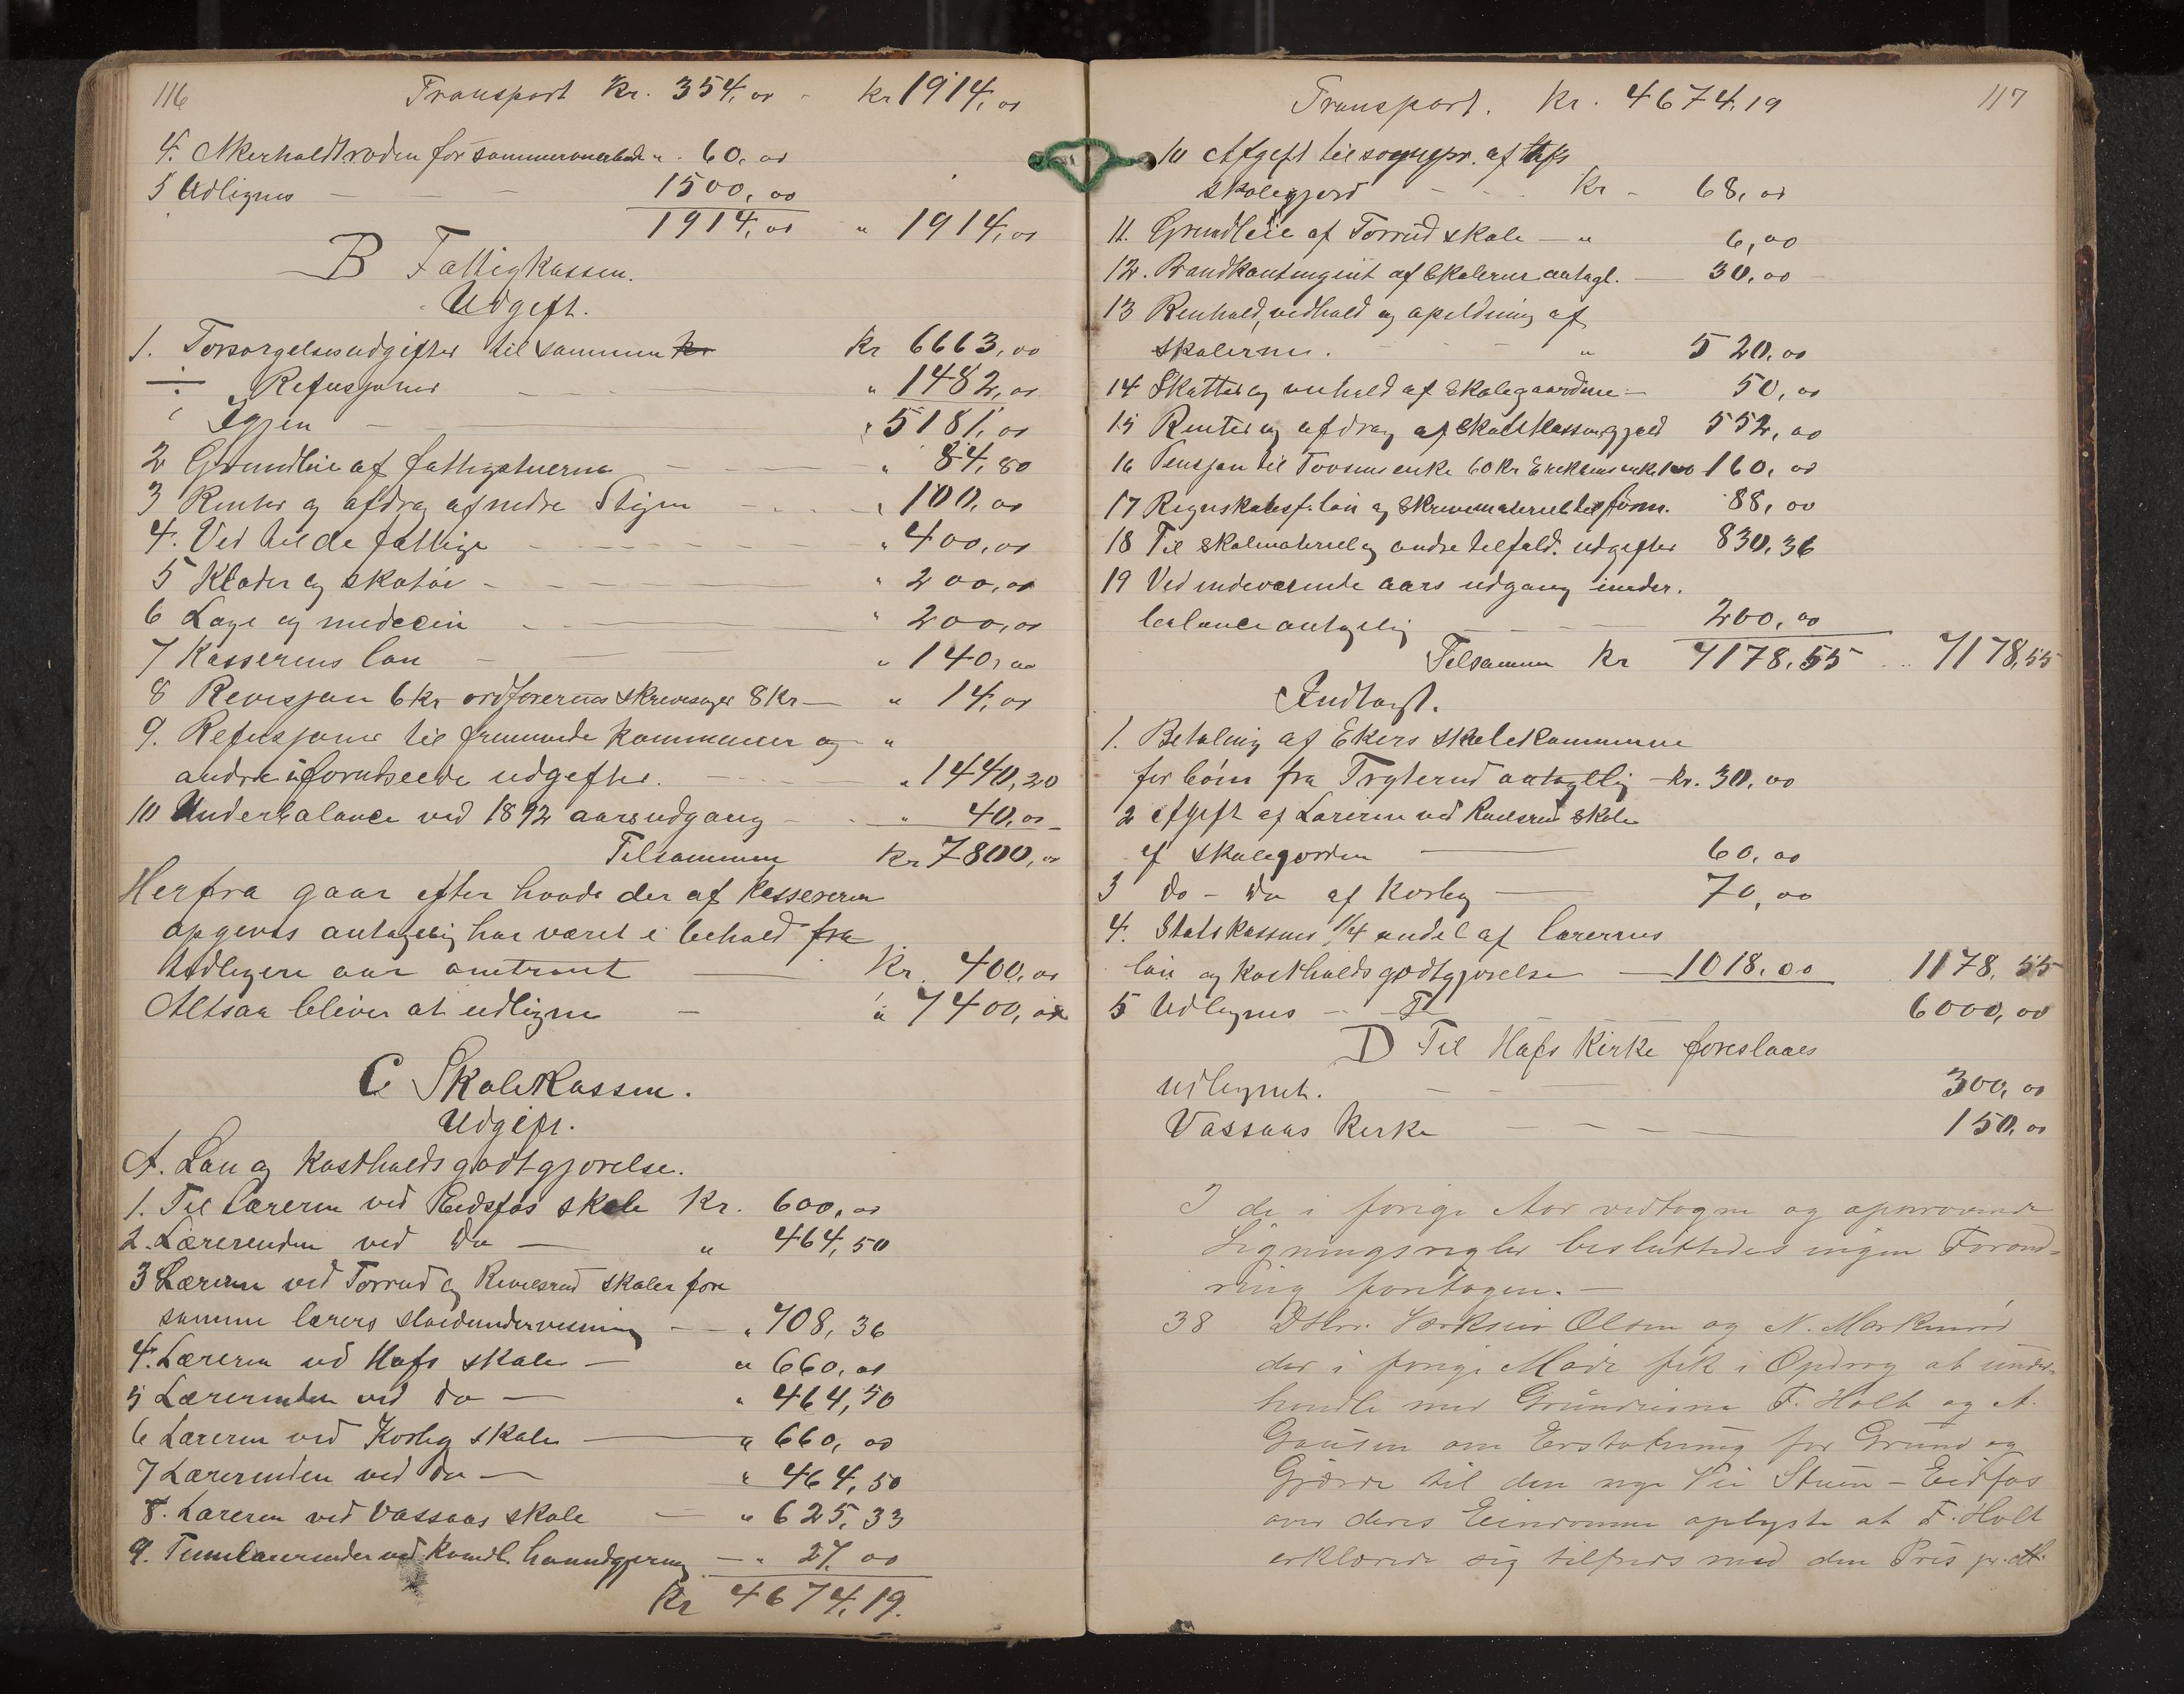 116
Transport Kr. 354,00 - kr 1914,00
4. for " 60,00
5 Udlignes — — 1500,00
1914,00 " 1914,00
B Fattigkassen.
Udgift.
1. Forsørgelsesudgifter tilsammen kr Kr 6663,00
÷ Refusjoner " 1482,00
Igjen — " 5181,00
2 Grundleie af fattigstuerne — " 84,80
3 Renter og afdrag af nedre Stigen — " 100,00
4. Ved til de fattige — " 400,00
5 Klæder og skotøi — " 200,00
6 Læge og medecin — " 200,00
7 Kasserens løn — " 140,00
8 Revisjon 6 kr ordførerens skrivesager 8 Kr — " 14,00
9. Refusjoner til fremmede kommuner og "
andre uforudseede udgifter. — " 1440,20
10 Underbalance ved 1892 aarsudgang — " 40,00
Tilsammen Kr 7800,00
Herfra gaar efter hvade der af kassereren
opgives antagelig har været i behold fra
tidligere aar omtrent — Kr. 400,00
Altsaa bliver at udligne — " 7400,00
C Skolekassen.
Udgift.
A. Løn og kostholdsgodtgjørelse.
1. Til læreren ved Eidsfos skole Kr. 600,00
2. Lærerinden ved Do — " 464,50
3 Læreren ved Torrud og Revelsrud skoler fore
samme lærers sløidundervisning — " 708,36
4. Læreren ved Hofs skole — " 660,00
5 Lærerinden ved do — " 464,50
6 Læreren ved Korbg skole — " 660,00
7 Lærerinden ved Do — " 464,50
8. Læreren ved Vassaas skole — " 625,33
9. ved kvindl. haandgjerning — " 27,00
Kr 4674,19.
117
Transport. Kr. 4674,19
10 Afgift til sognepr. af Hofs
skolegjord — Kr - 68,00
11. Grundleie af Torrud skole — " 6,00
12. Brandkontingent af skolerne antagl. — 30,00
13 Renhold, vedhold og opeldning af
skolerne. " 520,00
14 Skatter og vedhold af skolegaardene — 50,00
15 Renter og afdrag af skolekassens gjæld 552,00
16 Pensjon til Tovsens enke 60 Kr Ericksens enke 100 160,00
17 Regnskabsf. løn og skrivemateriel til form. 88,00
18 Til skolemateriel og andre tilfæld. udgifter 830,36
19 Ved indeværende aars udgang under.
balance antagelig — 200,00
Tilsammen Kr 7178,55 .. 7178,55
Indtægt.
1. Betaling af Ekers skolekommune
for børn fra Trylerud antagelig - kr. 30,00
2 Afgift af Læreren ved Revelsrud skole
af skolegorden — 60,00
3 do - do af Korbg — 70,00
4. Statskassens 1/4 andel af lærernes
løn og kostholdsgodtgjørelse — 1018,00 1178,55
5 Udlignes — 6000,00
D Til Hofs Kirke foreslaaes
udlignet. — 300,00
Vassaas Kirke — 150,00
I de i forige Aar vedtagne og approverede
Ligningsregler besluttedes ingen Forand-
ring foretagen. —
38 D'Hrr. Olsen og N. Markerud
der i forige Møde fik i Opdrag at under-
handle med Grundeierne F. Holt og A.
Gausen om Erstatning for Grund og
Gjærde til den nye Vei Stuen - Eidfos
over deres Eiendomme oplyste at F. Holt
erklærede sig tilfreds med den Pris pr.